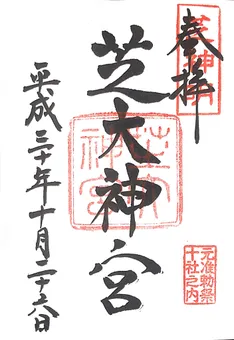 奉拝
芝大神宮
平成三十年十月二十六日
元准勅祭
十社之内